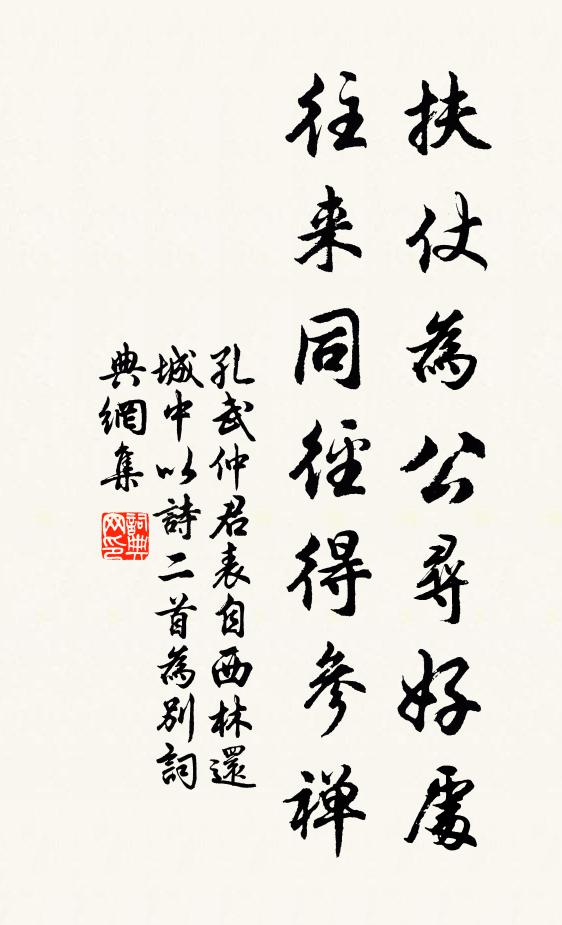 扶仗為公尋好處
往来同徑得參禅
孔武仲君表自西林還
城中以詩二首為別詞
典網集
詞典
网印